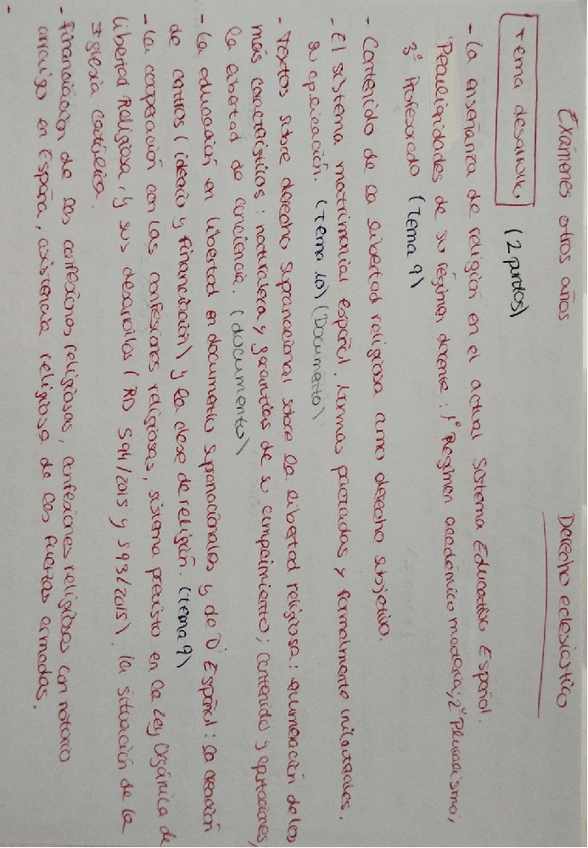 Exámenes otros años
Derecho eclesiástico
Tema desarrollo (2 puntos)
- La enseñanza de religión en el actual Sistema Educativo Español.
Peculiaridades de su régimen docente: 1º Régimen académico material; 2º Pluralismo;
3º Profesorado (Tema 9)
- Contenido de la libertad religiosa como derecho subjetivo.
- El sistema matrimonial español. Normas pactadas y formalmente unilaterales.
su aplicación. (Tema 10) (Documento)
- Textos sobre derecho supranacional sobre la libertad religiosa: enumeración de los
más característicos: naturaleza y garantías de su cumplimiento; contenido y aportaciones,
la libertad de conciencia. (documento)
- La educación en libertad en documentos supranacionales y de Dº Español: la creación
de centros (ideario y financiación) y la clase de religión. (Tema 9)
- La cooperación con las confesiones religiosas, sistema previsto en la Ley Orgánica de
libertad Religiosa, y sus desarrollos (RD 594/2015 y 593/2015). La situación de la
Iglesia Católica.
- Financiación de las confesiones religiosas, confesiones religiosas con notorio
arraigo en España, asistencia religiosa de las fuerzas armadas.
-